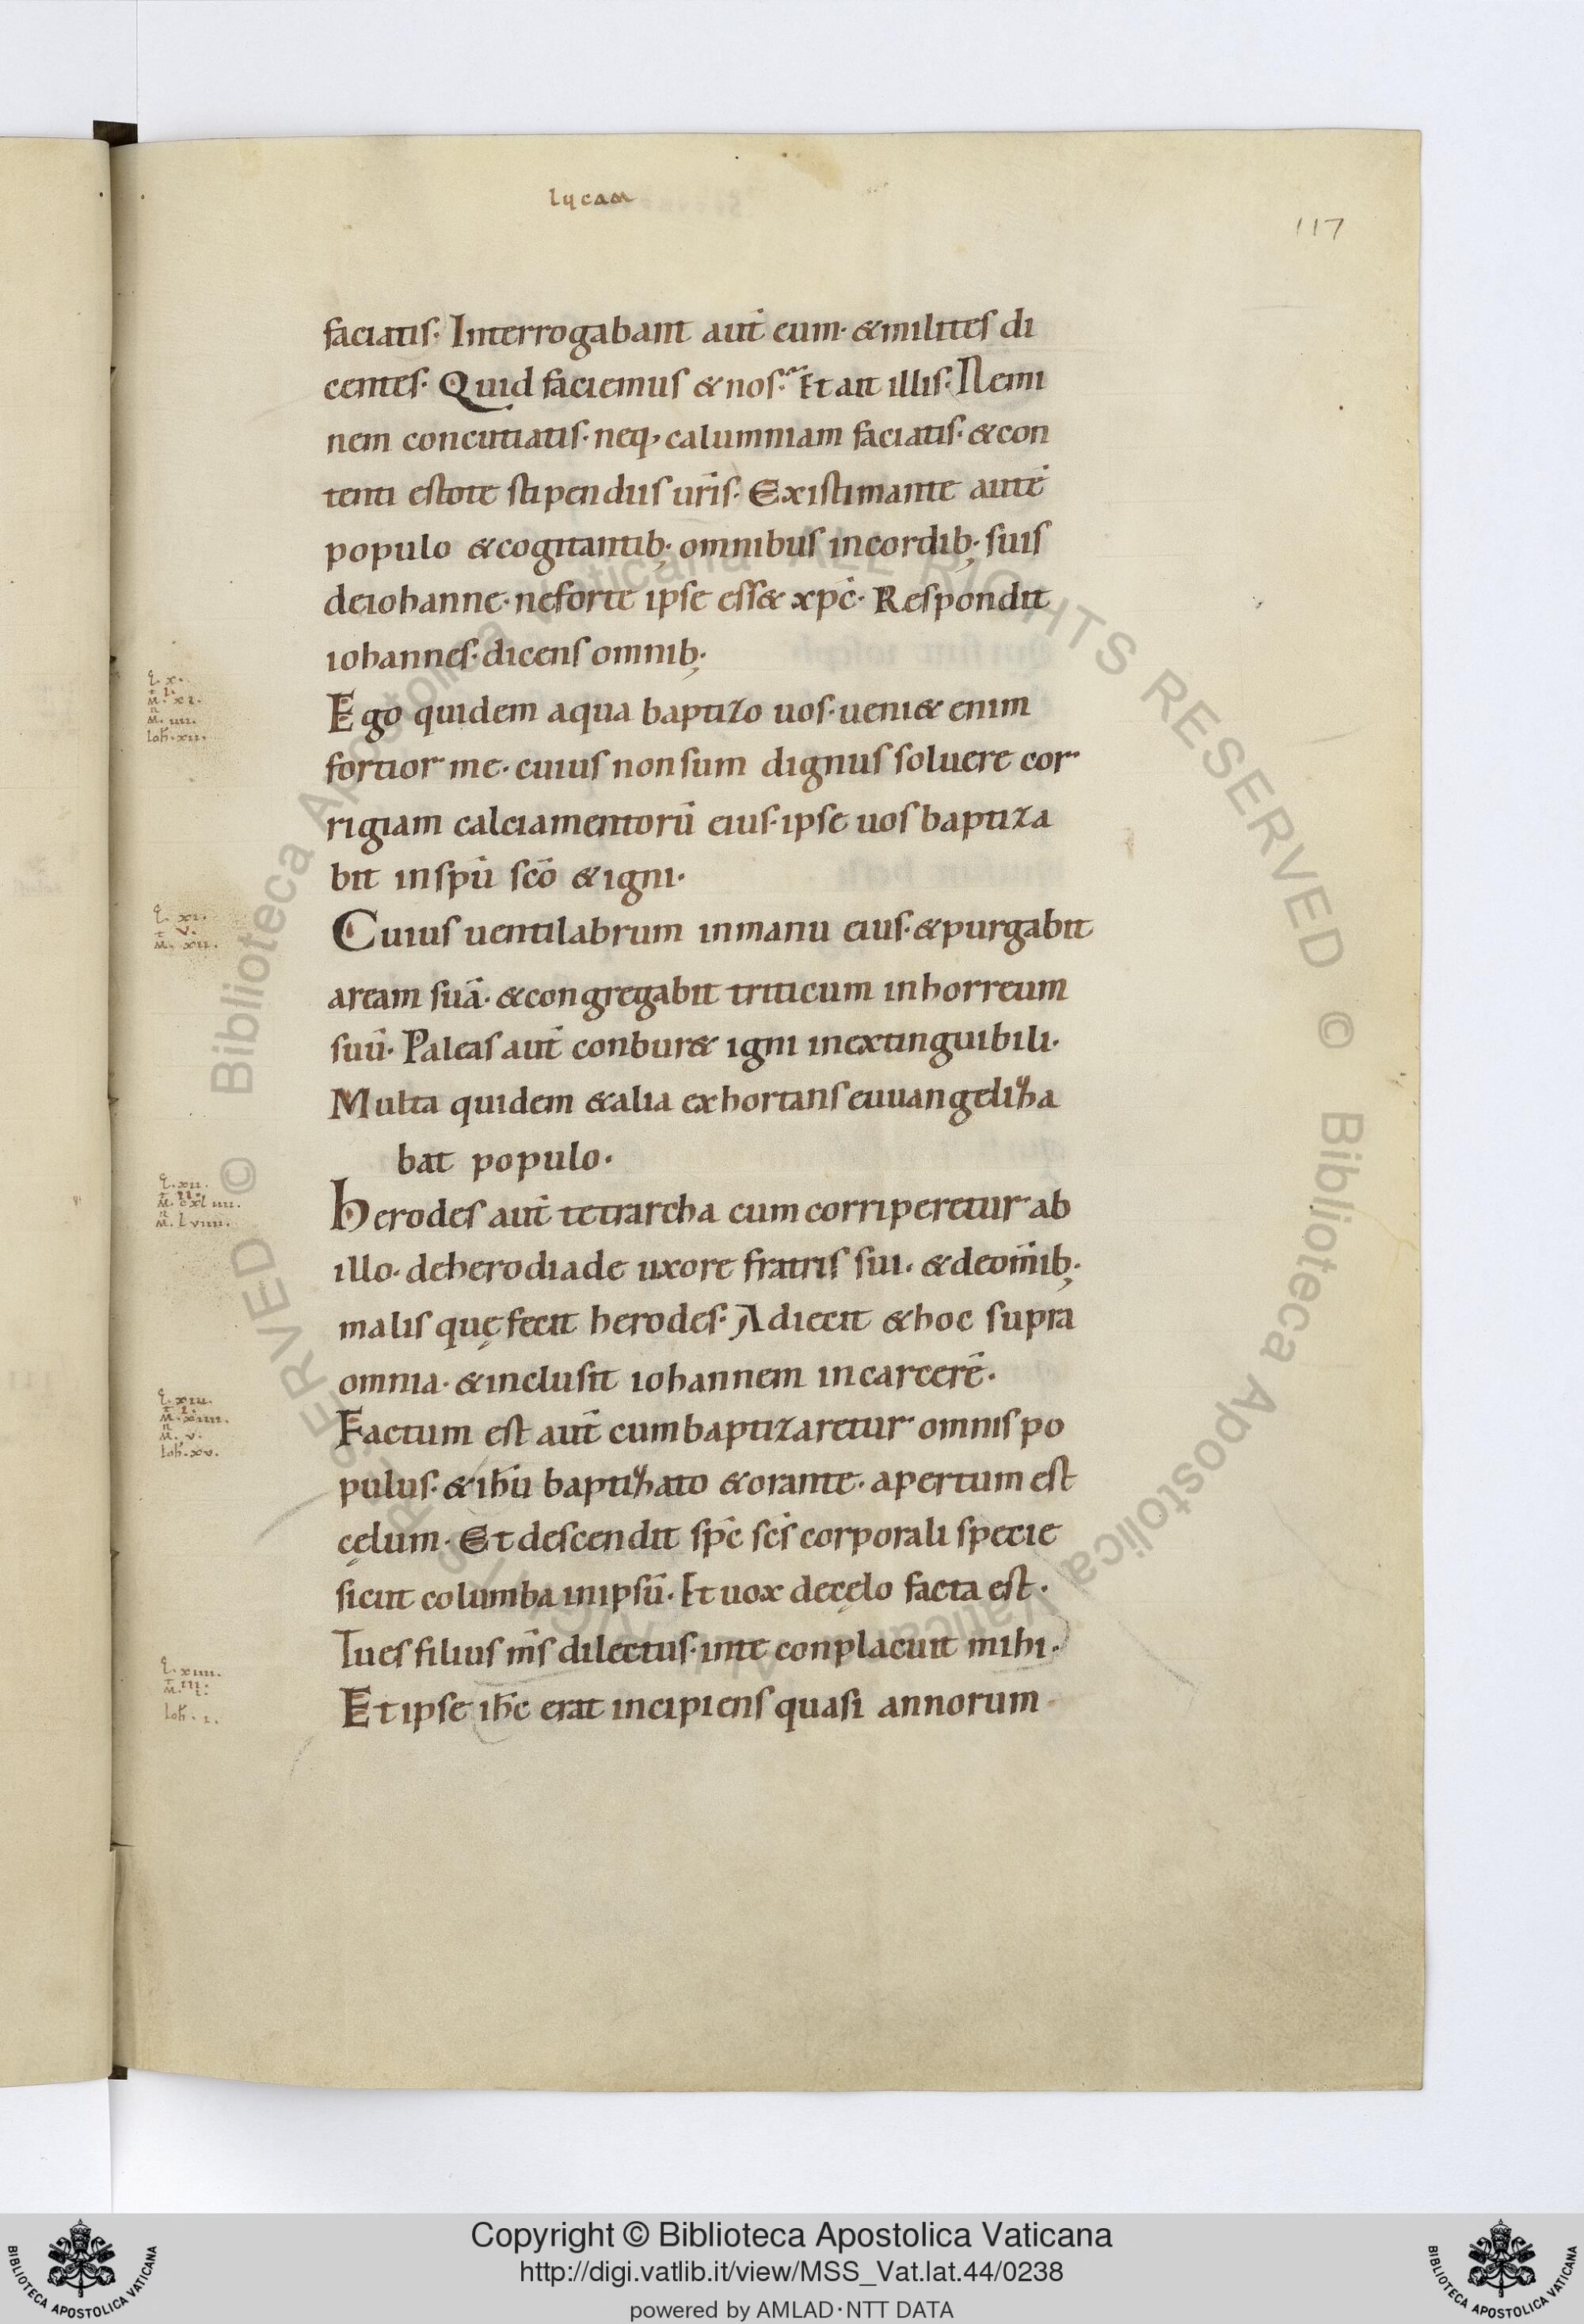 lucam
117
faciatis· Interrogabant aut̄ eum· &milites di
centes· Quid faciemus &nos· Et ait illis· Nemi
nem concutiatis· neq; calumniam faciatis· &con
tenti estote stipendiis ur̄is· Existimante autē
populo &cogitantib; omnibus incordib; suis
deiohanne· neforte ipse ess& xp̄c· Respondit
iohannes· dicens omnib;
Ego quidem aqua baptizo uos· ueni& enim
fortior me· cuius nonsum dignus soluere cor
rigiam calciamentorū eius· ipse uos baptiza
bit inspū scō &igni·
Cuius uentilabrum inmanu eius· &purgabit
aream suā· &congregabit triticum inhorreum
suū· Paleas aut̄ conbur& igni inextinguibili·
Multa quidem &alia exhortans euuangeliza
bat populo·
herodes aut̄ tetrarcha cum corriperetur ab
illo· deherodiade uxore fratris sui· &deom̄ib;
malis quę fecit herodes· Adiecit &hoc supra
omnia· &inclusit iohannem incarcerē·
Factum est aut̄ cum baptizaretur omnis po
pulus· &ihū baptizato &orante· apertum est
cęlum· Et descendit sp̄c sc̄s corporali specie
sicut columba inipsū· Et uox decęlo facta est·
Tu es filius m̄s dilectus· inte conplacuit mihi·
Et ipse ih̄c erat incipiens quasi annorum
Copyright © Biblioteca Apostolica Vaticana
http://digi.vatlib.it/view/MSS_Vat.lat.44/0238
powered by AMLAD·NTT DATA
BIBLIOTECA APOSTOLICA VATICANA
BIBLIOTECA APOSTOLICA VATICANA